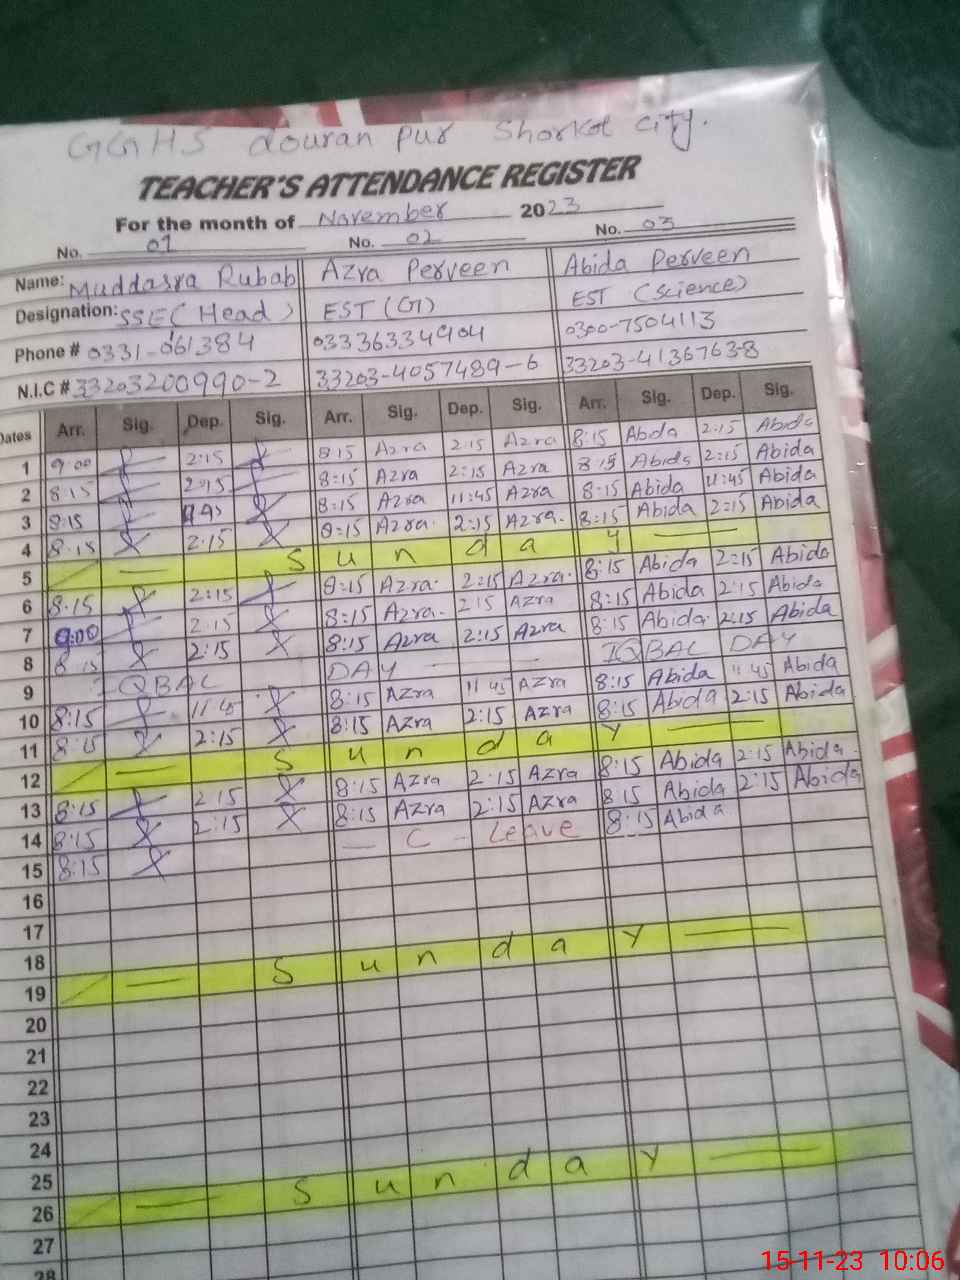 GGHS douran pur Shorkot city.
TEACHER'S ATTENDANCE REGISTER
For the month of November 2023
No. 01 No. 02 No. 03
Name: Muddasra Rubab Azra Perveen Abida Perveen
Designation: SSE (Head) EST (G) EST (Science)
Phone # 0331-061384 03336334904 0300-7504113
N.I.C # 33203200990-2 33203-4057489-6 33203-4136763-8
Dates Arr. Sig. Dep. Sig. Arr. Sig. Dep. Sig. Arr. Sig. Dep. Sig.
1 9:00 2:15 8:15 Azra 2:15 Azra 8:15 Abida 2:15 Abida
2 8:15 2:15 8:15 Azra 2:15 Azra 8:15 Abida 2:15 Abida
3 8:15 8:15 Azra 11:45 Azra 8:15 Abida 11:45 Abida
4 8:15 2:15 8:15 Azra. 2:15 Azra. 8:15 Abida 2:15 Abida
5 Sunday
6 8:15 2:15 8:15 Azra. 2:15 Azra. 8:15 Abida 2:15 Abida
7 9:00 2:15 8:15 Azra. 2:15 Azra 8:15 Abida 2:15 Abida
8 8:15 2:15 8:15 Azra 2:15 Azra 8:15 Abida. 2:15 Abida
9 IQBAL DAY IQBAL DAY
10 8:15 11:45 8:15 Azra 11:45 Azra 8:15 Abida 11:45 Abida
11 8:15 2:15 8:15 Azra 2:15 Azra 8:15 Abida 2:15 Abida
12 Sunday
13 8:15 2:15 8:15 Azra 2:15 Azra 8:15 Abida 2:15 Abida.
14 8:15 2:15 8:15 Azra 2:15 Azra 8:15 Abida 2:15 Abida
15 8:15 C - Leave 8:15 Abida
16
17
18
19 Sunday
20
21
22
23
24
25
26 Sunday
27
28
15-11-23 10:06